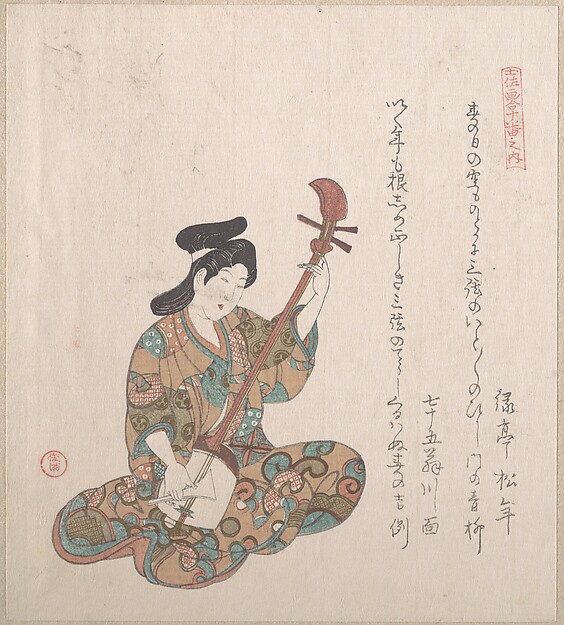 土佐画合十番之内
春の日の空ものとかに三弦のいとくりのへし門の青柳
緑亭松年
いく年も根しめ正しき三弦のてうしくるハぬ春の吉例
七十五 川面